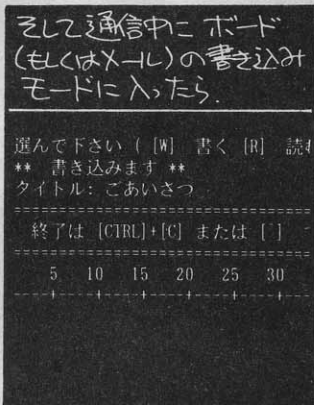 そして通信中に ボード
(もしくはメール)の書き込み
モードに入ったら.
選んで下さい ( [W] 書く [R] 読
** 書き込みます **
タイトル: ごあいさつ
================================
終了は [CTRL]+[C] または [^]
================================
5 10 15 20 25 30
----+----+----+----+----+----+--